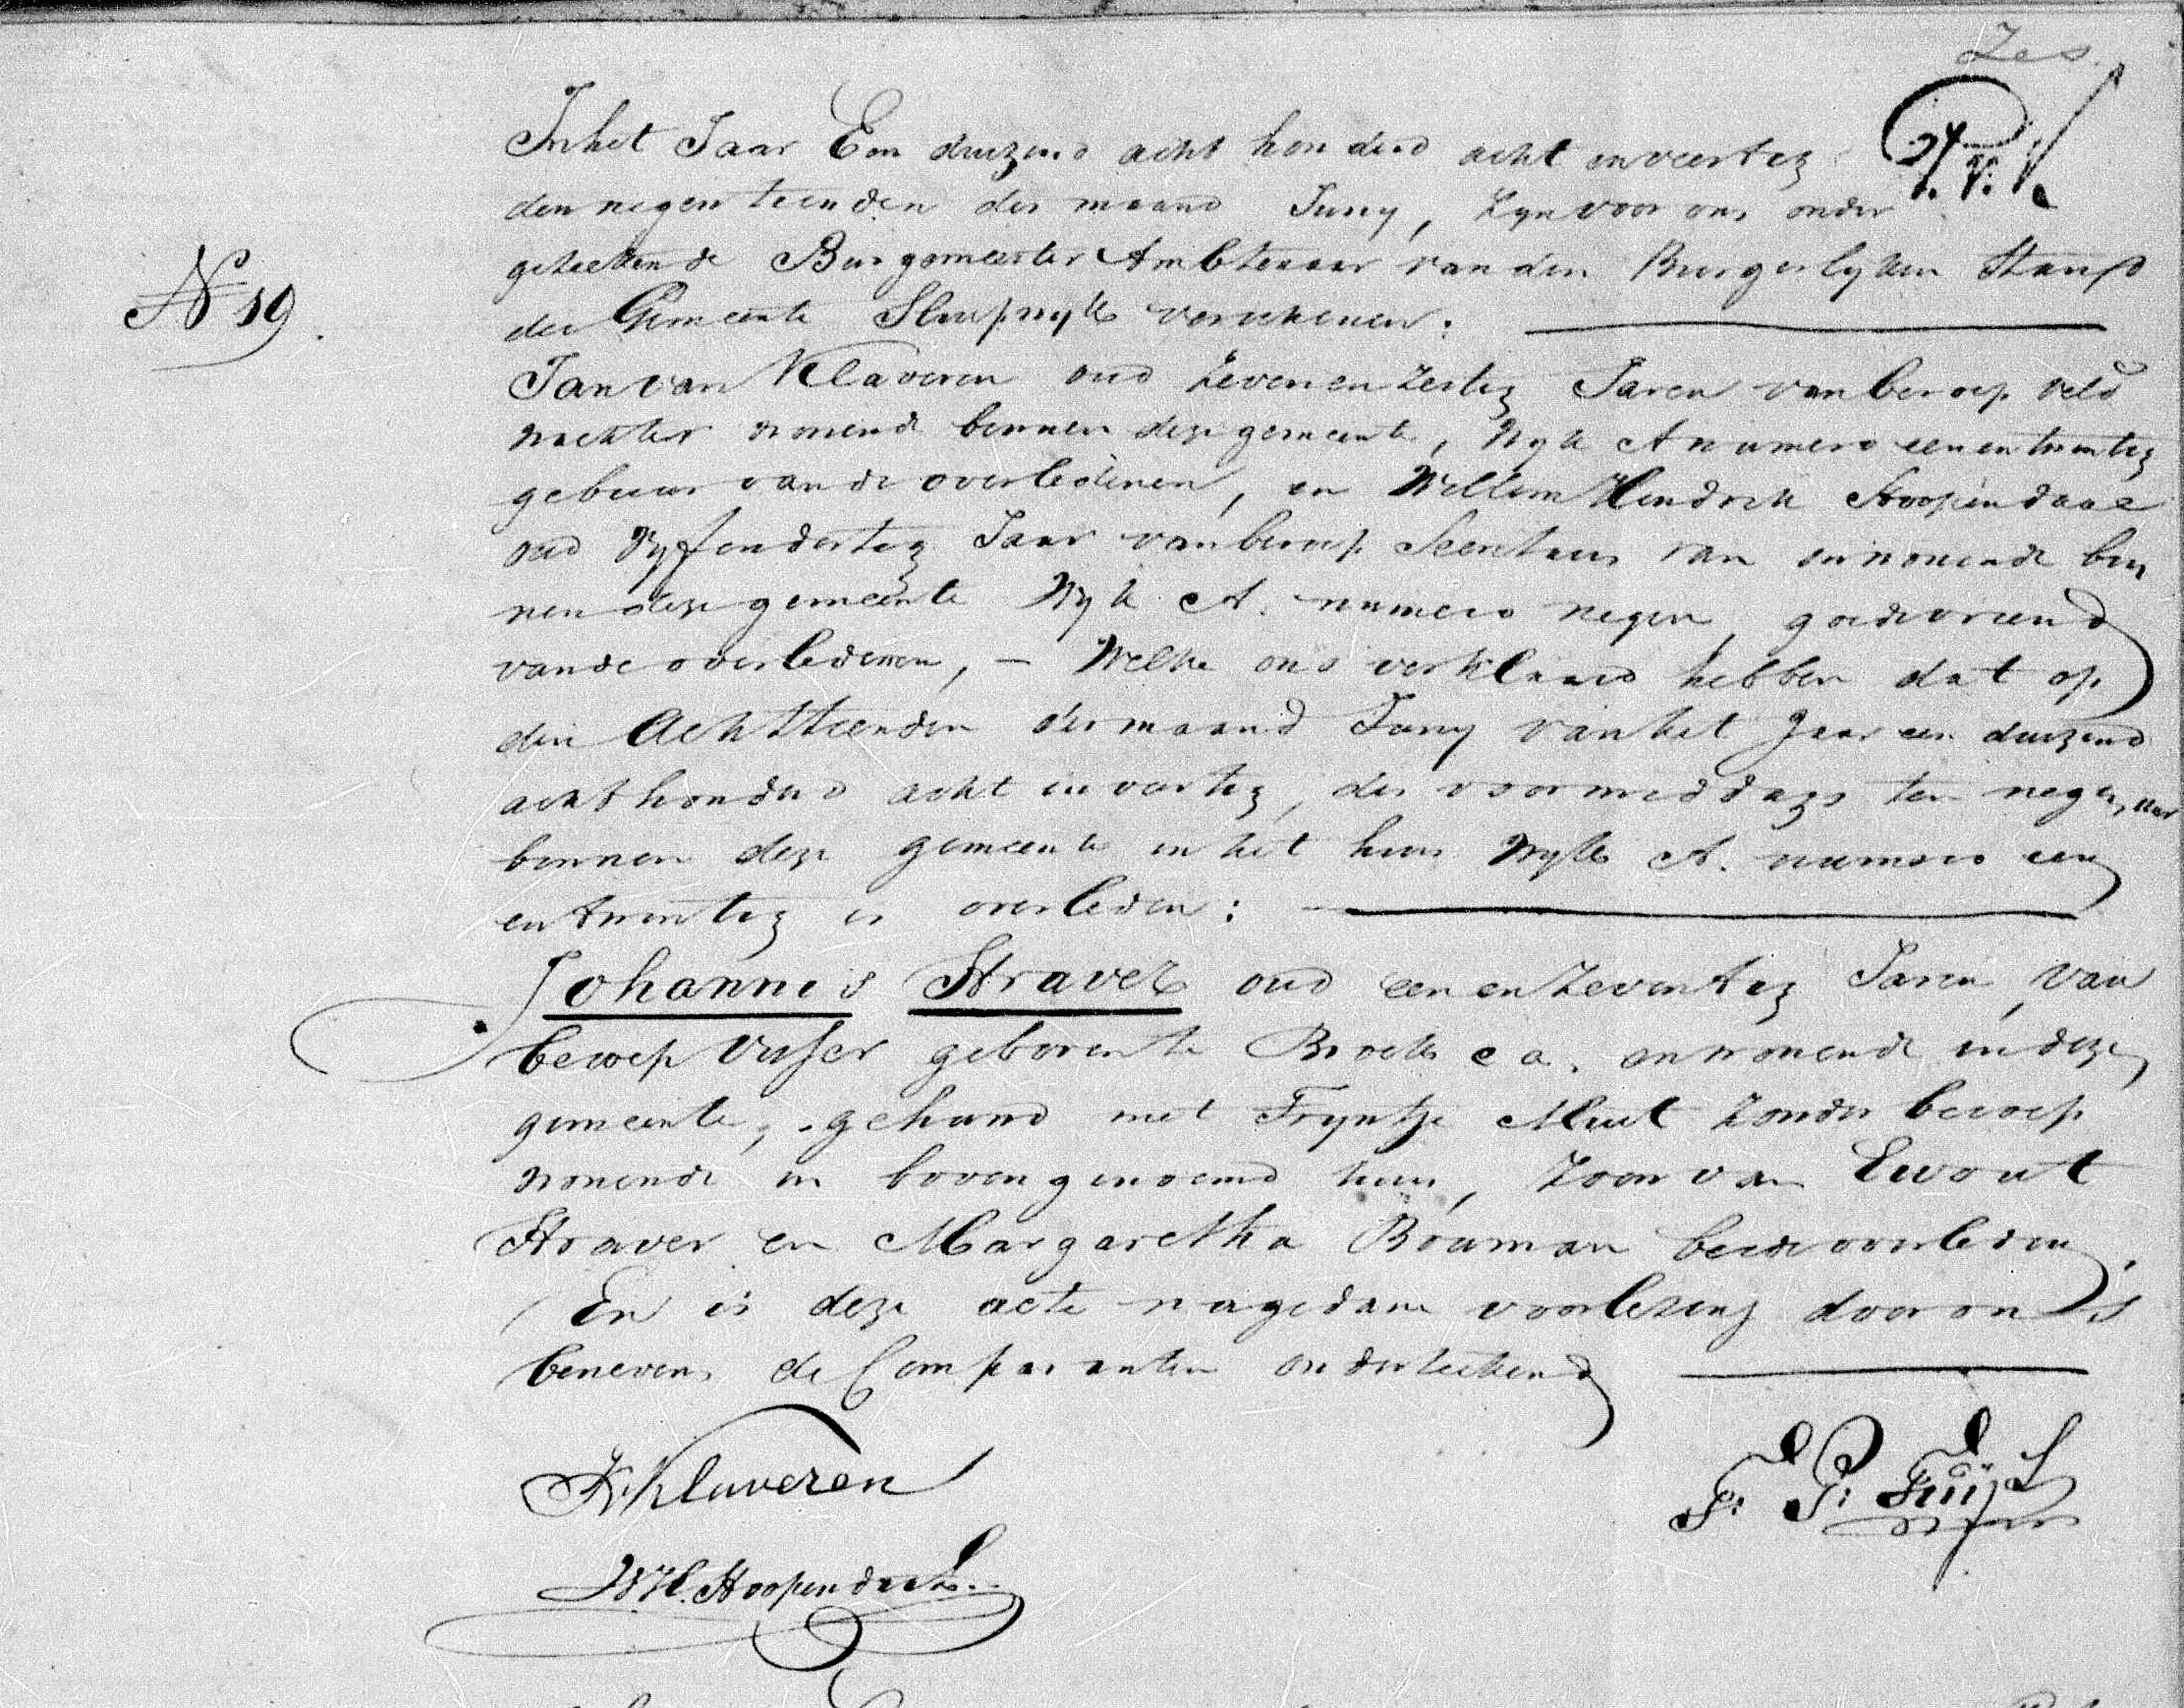 Zes
N 19.
In het Jaar Een duizend acht honderd acht en veertig
den negenteenden der maand Juny, Zyn voor ons onder
geteekende Burgemeester Ambtenaar van den Burgerlyken Stand
der Gemeente Sluipwyk verschenen:
Jan van Klaveren oud Zeven en Zestig Jaren van beroep veld
wachter wonende binnen deze gemeente, Wyk A numero een en twintig
gebuur van de overledenen, en Willem Hendrik Hoopendaal
oud Vyf en dertig Jaar van beroep Secretaris van en wonende bin
nen deze gemeente Wyk A. numero negen, goede vriend
van de overledenen, – Welke ons verklaard hebben dat op
den Achtteenden der maand Juny van het Jaar een duizend
acht honderd acht en veertig, des voormiddags ten negen uur
binnen deze gemeente in het huis Wyk A. numero een
en twintig is overleden:
Johannis Straver oud een en Zeventig Jaren, van
beroep Visser geboren te Broek c a. en wonende in deze
gemeente, gehuwd met Fryntje Muit Zonder beroep
wonende in bovengenoemd huis, Zoon van Ewout
Straver en Margaretha Bouman beide overleden.
En is deze acte na gedane voorlezing door ons
benevens de Comparanten onderteekend
K Klaveren
WH. Hoopendaal.